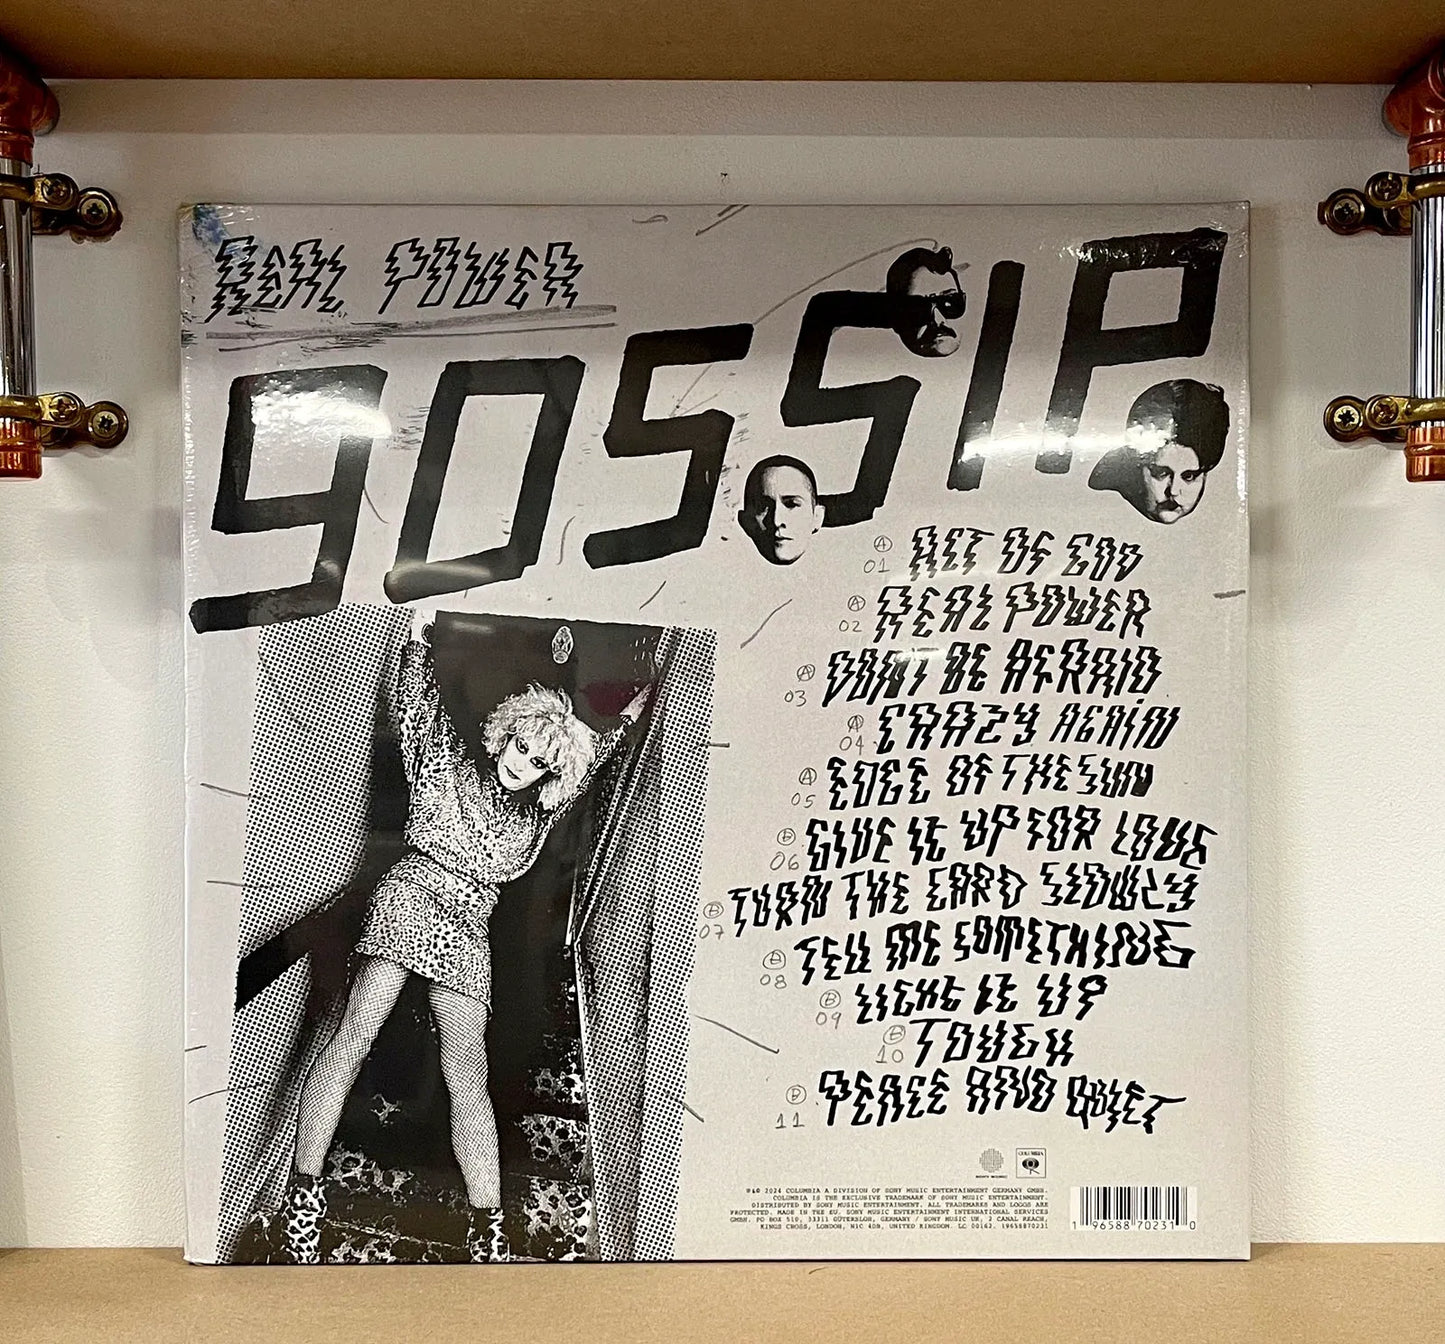 REAL POWER
gOSSIP
A 01 ACT OF GOD
A 02 REAL POWER
A 03 DON'T BE AFRAID
A 04 CRAZY AGAIN
A 05 EDGE OF THE SUN
B 06 GIVE IT UP FOR LOVE
B 07 TURN THE CARD SLOWLY
B 08 TELL ME SOMETHING
B 09 LIGHT IT UP
B 10 TOUGH
B 11 PEACE AND QUIET
COLUMBIA
℗&© 2024 COLUMBIA A DIVISION OF SONY MUSIC ENTERTAINMENT GERMANY GMBH.
COLUMBIA IS THE EXCLUSIVE TRADEMARK OF SONY MUSIC ENTERTAINMENT.
DISTRIBUTED BY SONY MUSIC ENTERTAINMENT. ALL TRADEMARKS AND LOGOS ARE
PROTECTED. MADE IN THE EU. SONY MUSIC ENTERTAINMENT INTERNATIONAL SERVICES
GMBH. PO BOX 510, 33311 GÜTERSLOH, GERMANY / SONY MUSIC UK, 2 CANAL REACH,
KINGS CROSS, LONDON, N1C 4DB, UNITED KINGDOM. LC 00162. 19658870231
1 96588 70231 0